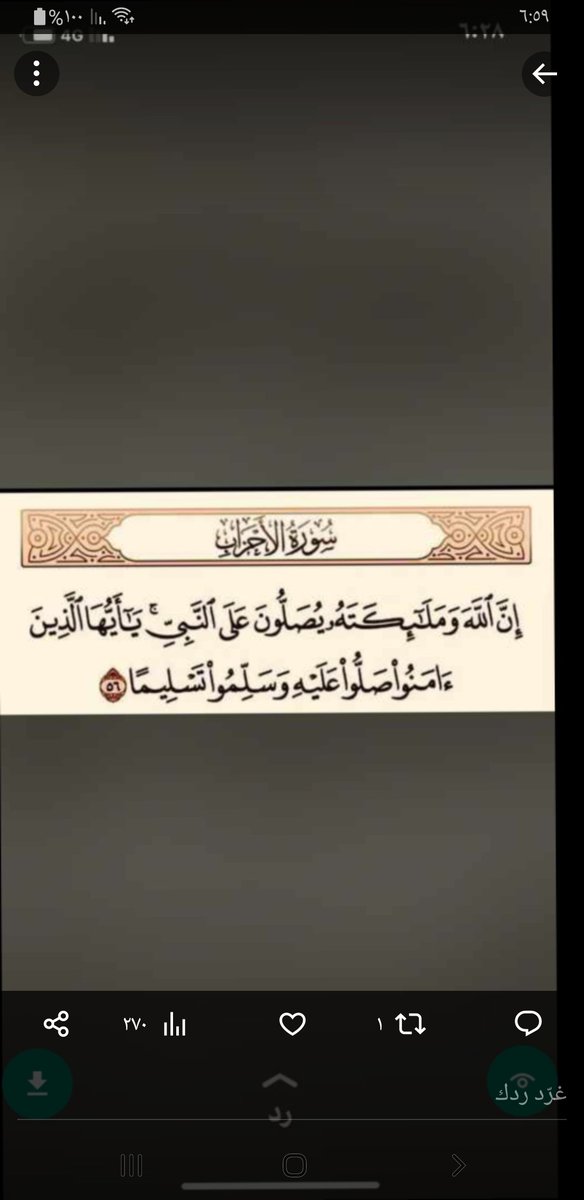 %١٠٠ ٦:٥٩
4G ٦:٢٨
سُورَةُ الأَحْزَابِ
إِنَّ ٱللَّهَ وَمَلَٰٓئِكَتَهُۥ يُصَلُّونَ عَلَى ٱلنَّبِيِّۚ يَٰٓأَيُّهَا ٱلَّذِينَ
ءَامَنُوا۟ صَلُّوا۟ عَلَيْهِ وَسَلِّمُوا۟ تَسْلِيمًا ٥٦
١ ٢٧٠
غرّد ردك
رد